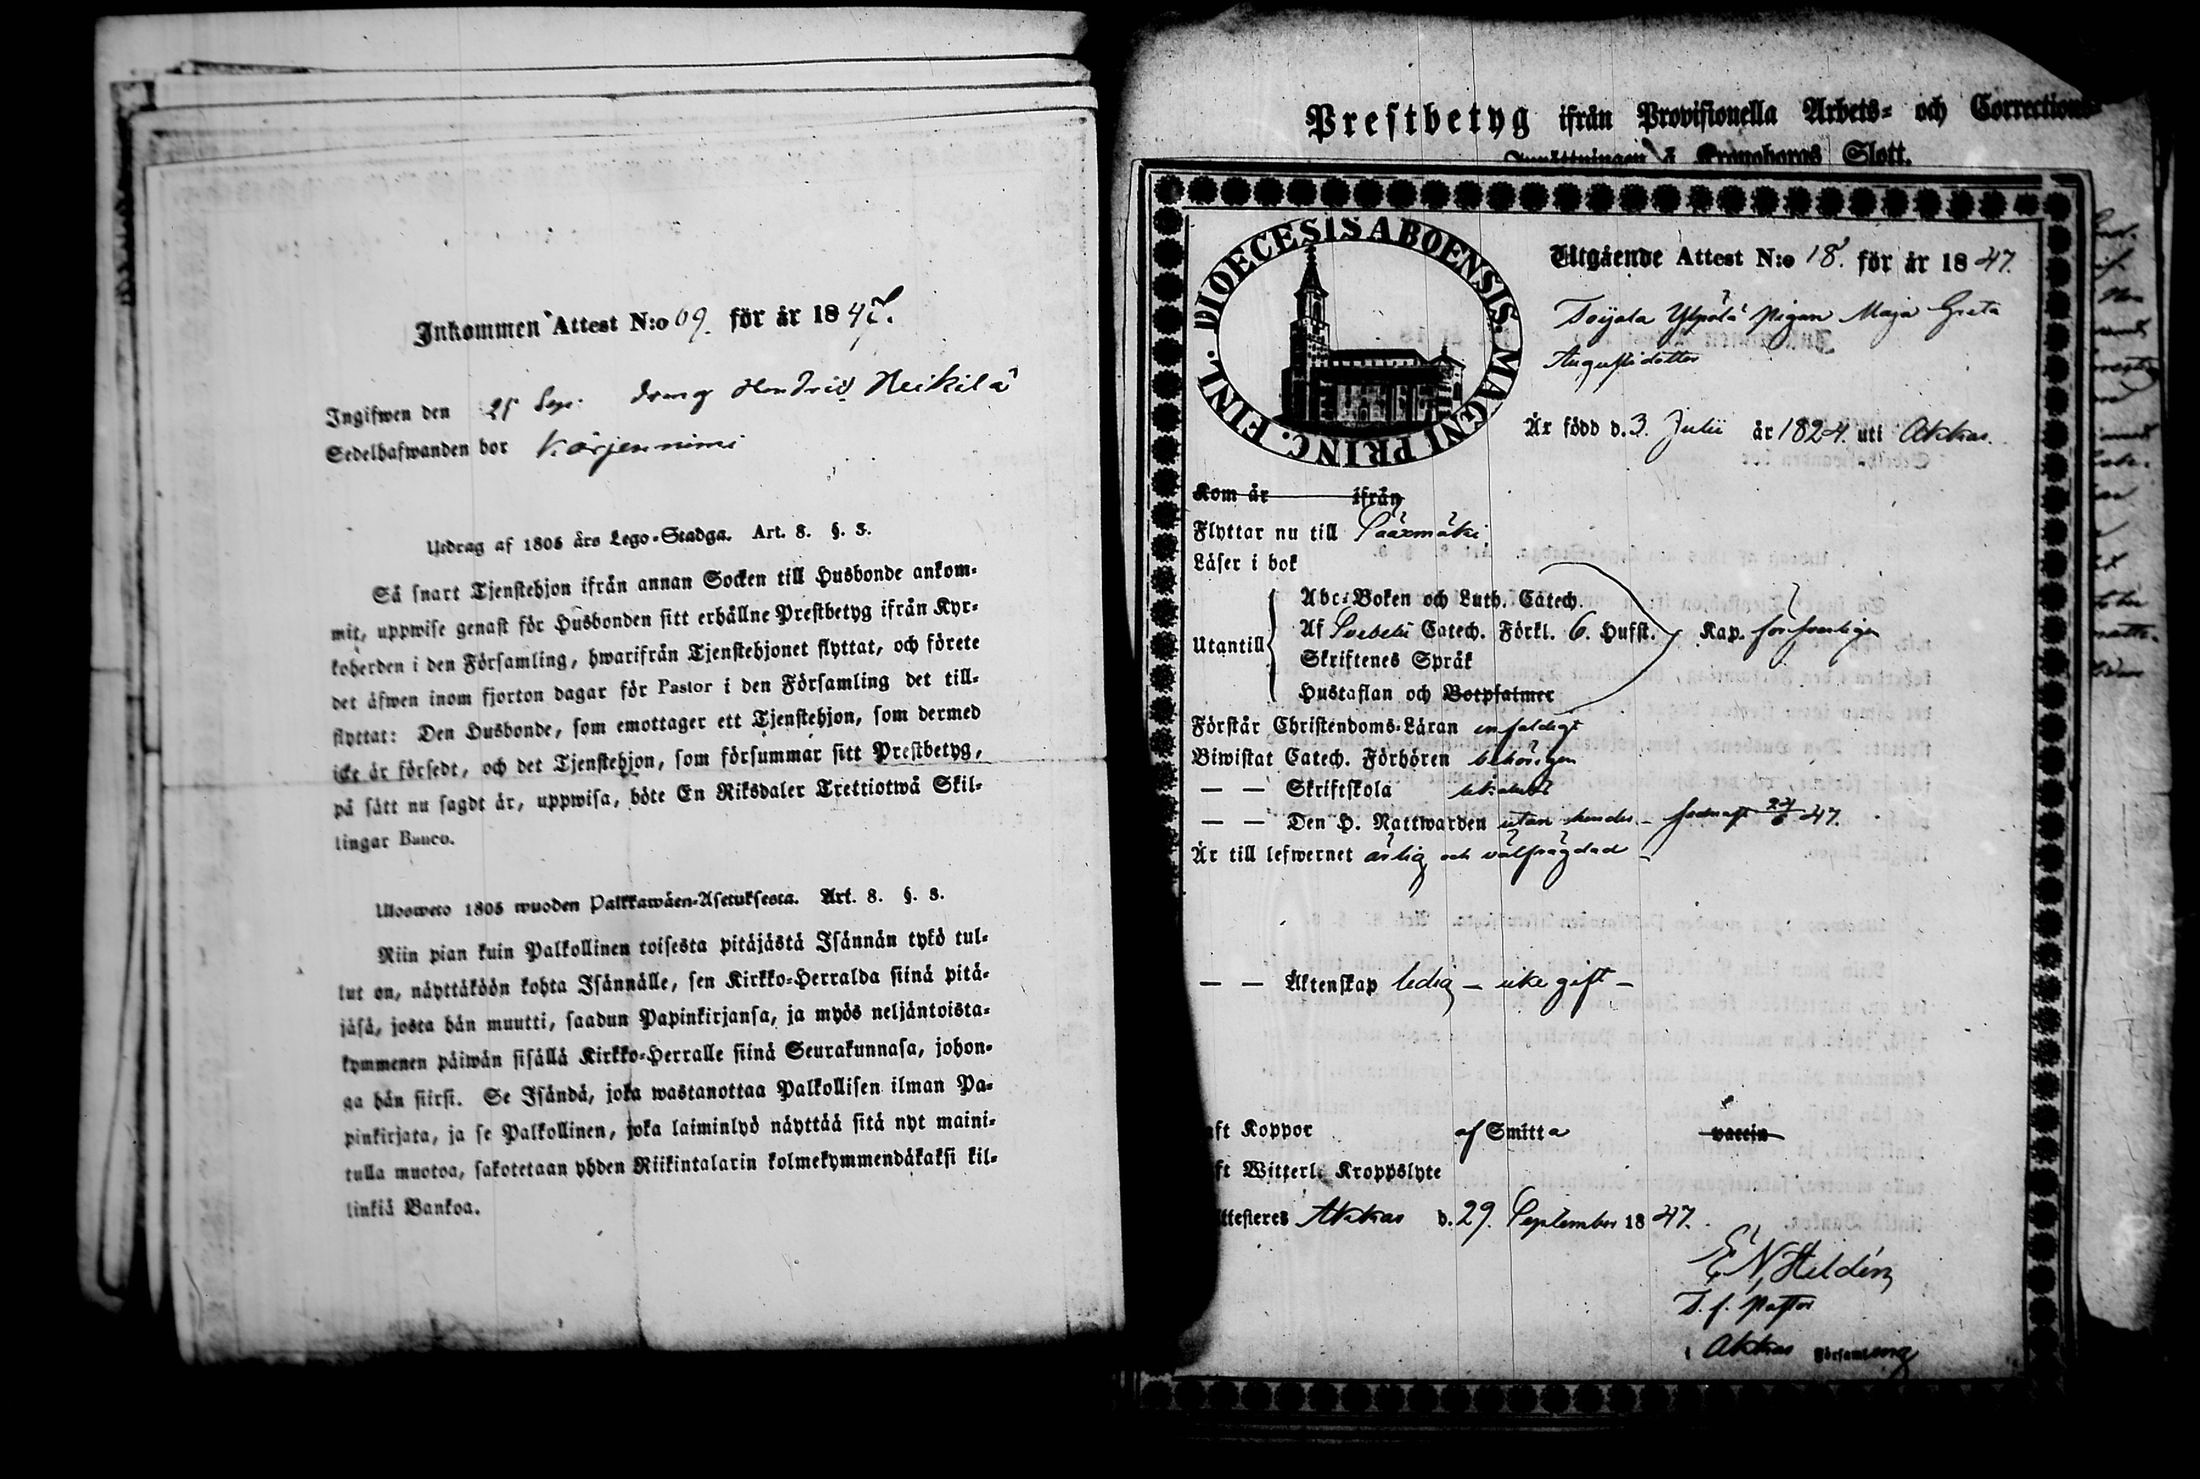 Inkommen Attest N:o 69. för år 1847.
Ingifwen den 25 Sep. dreng Hendric Heikilä
Sedelhafwanden bor Kärjenniemi
Utdrag af 1805 års Lego-Stadga. Art. 8. §. 3.
Så snart Tjenstehjon ifrån annan Socken till Husbonde ankom-
mit, uppwise genast för Husbonden sitt erhållne Prestbetyg ifrån Kyr-
koherden i den Församling, hwarifrån Tjenstehjonet flyttat, och förete
det äfwen inom fjorton dagar för Pastor i den Församling det till-
flyttat: Den Husbonde, som emottager ett Tjenstehjon, som dermed
icke är försedt, och det Tjenstehjon, som försummar sitt Prestbetyg,
på sätt nu sagdt är, uppwisa, böte En Riksdaler Trettiotwå Skil-
lingar Banco.
Ulosweto 1805 wuoden Palkkawäen-Asetuksesta. Art. 8. §. 3.
Niin pian kuin Palkollinen toisesta pitäjästä Isännän tykö tul-
lut on, näyttäköön kohta Isännälle, sen Kirkko-Herralda siinä pitä-
jäsä, josta hän muutti, saadun Papinkirjansa, ja myös neljäntoista-
kymmenen päiwän sisällä Kirkko-Herralle siinä Seurakunnasa, johon-
ga hän siirsi. Se Isändä, joka wastanottaa Palkollisen ilman Pa-
pinkirjata, ja se Palkollinen, joka laiminlyö näyttää sitä nyt maini-
tulla muotoa, sakotetaan yhden Riikintalarin kolmekymmendäkaksi kil-
linkiä Bankoa.
Prestbetyg ifrån Provisionella Arbets- och Corrections-
Inrättningen å Kronoborgs Slott.
DIOECESIS ABOENSIS. MAGNI PRINC. FINL.
Utgående Attest N:o 18. för år 1847.
Toijala Ylpölä pigan Maja Greta
Augustidotter
Är född d. 3. Julii år 1824. uti Akkas.
Kom år ifrån
Flyttar nu till Sääxmäki
Läser i bok
Utantill
Abc-Boken och Luth. Catech.
Af Svebelii Catech. Förkl. 6. Hufst. Kap. försvarligen
Skriftenes Språk
Hustaflan och Botpsalmer
Förstår Christendoms-Läran enfaldigt
Biwistat Catech. Förhören behörigen
— — Skriftskola
— — Den H. Nattwarden utan hinder - sednast 47.
Är till lefwernet ärlig och välfrägdad -
— — Äktenskap ledig - icke gift -
aft Koppor af Smitta vaccin
ft Witterl. Kroppslyte
ttesteres Akkas d. 29. September 1847.
E N Heldén
T. f. Pastor
i Akkas Församling